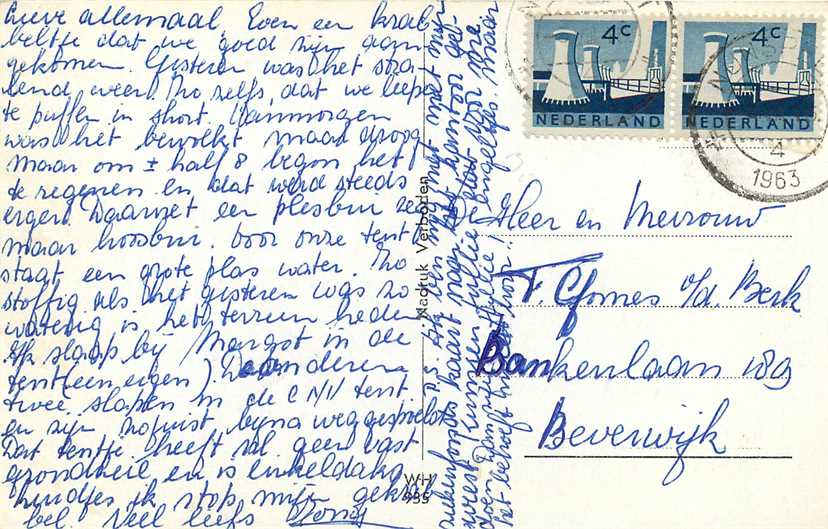 Lieve allemaal Even een krab-
beltje dat we goed zijn aan
gekomen. Gisteren was het stra-
lend weer. Zo zelfs, dat we liepen
te puffen in short. Vanmorgen
was het bewolkt maar droog
maar om ± half 8 begon het
te regenen en dat werd steeds
erger. Daarnet een plesbui zeg
maar hoosbui. Voor onze tent
staat een grote plas water. Zo
stoffig als het gisteren was zo
waterig is het terrein heden
Ik slaap bij Margot in de
tent (een eigen). De anderen
twee slapen in de C N V tent
en zijn zojuist bijna weggespoeld
Dat tentje heeft nl. geen vast
grondzeil en is enkeldaks
kindjes ik stop mijn gekrab
bel. Veel liefs
P.S. Ik ben nog niet met mijn
ziekenfonds kaart naar het kantoor ge-
weest. Kunnen jullie dat voor me
doen
het behoeft niet hoor!
Nadruk Verboden
WH
935
4c
NEDERLAND
4c
NEDERLAND
4
1963
De Heer en Mevrouw
F. Gomes v/d. Berk
Bankenlaan 189
Beverwijk